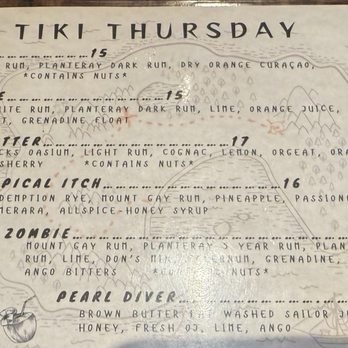 TIKI THURSDAY
15
RUM, PLANTERAY DARK RUM, DRY ORANGE CURAÇAO,
*CONTAINS NUTS*
15
RUM, PLANTERAY DARK RUM, LIME, ORANGE JUICE,
GRENADINE FLOAT
17
OASIUM, LIGHT RUM, COGNAC, LEMON, ORGEAT,
SHERRY *CONTAINS NUTS*
ITCH 16
RYE, MOUNT GAY RUM, PINEAPPLE,
ALLSPICE-HONEY SYRUP
ZOMBIE
MOUNT GAY RUM, PLANTERAY 3 YEAR RUM,
RUM, LIME, DON'S GRENADINE,
ANGO BITTERS NUTS*
PEARL DIVER
BROWN BUTTER FAT WASHED SAILOR
HONEY, FRESH OJ, LIME, ANGO